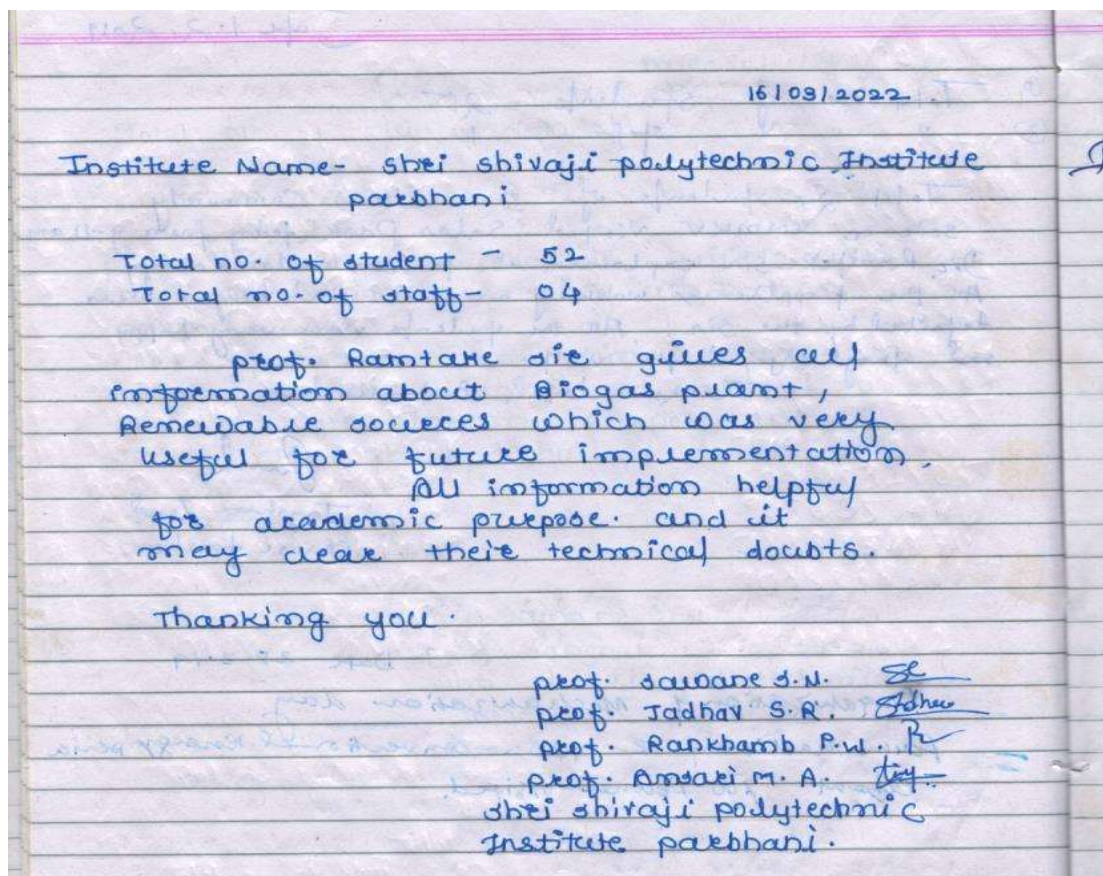 16/03/2022
Institute Name- Shri Shivaji polytechnic Institute
parbhani
Total no. of student - 52
Total no. of staff- 04
prof. Ramtake sir gives all
information about Biogas plant,
Renewable sources which was very
useful for future implementation.
All information helpful
for academic purpose. and it
may clear their technical doubts.
Thanking you.
prof. Sawane S.N.
prof. Jadhav S.R.
prof. Rankhamb P.W.
prof. Ansari M. A.
Shri Shivaji polytechnic
Institute parbhani.